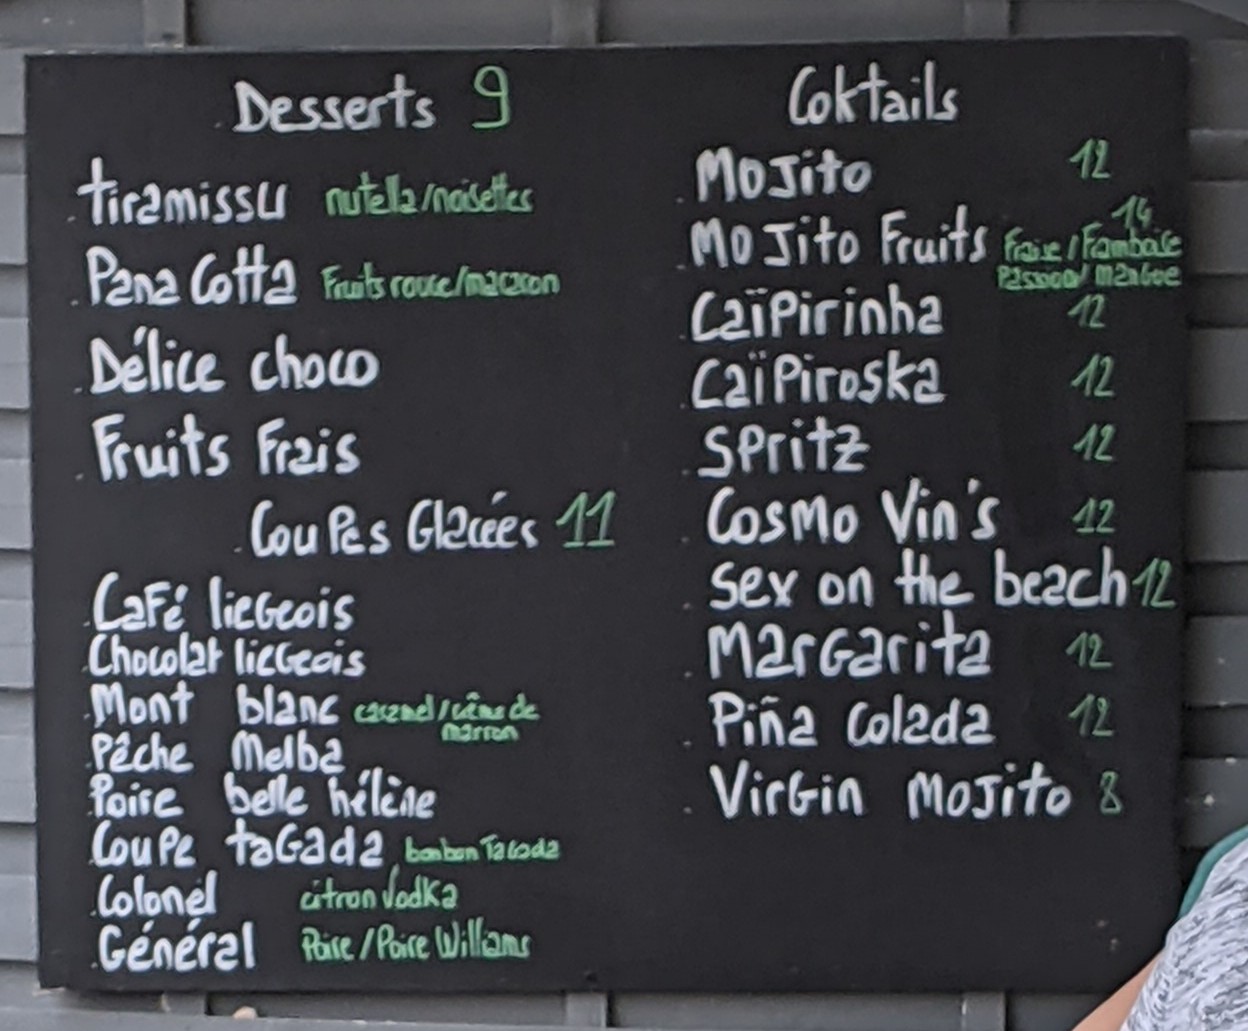 Desserts 9
. tiramissu nutella/noisettes
. Pana Cotta Fruits rouge/macaron
. Délice choco
. Fruits Frais
. Coupes Glacées 11
. Café liegeois
. Chocolat liegeois
. Mont blanc caramel/crème de
marron
. Pêche Melba
. Poire belle hélène
. Coupe taGada bonbon Tagada
. Colonel citron Vodka
. Général Poire/Poire Williams
Coktails
. MoJito 12
. MoJito Fruits 14
Fraise/Framboise
Passion/Mangue
. Caïpirinha 12
. Caïpiroska 12
. Spritz 12
. Cosmo Vin's 12
. Sex on the beach 12
. Margarita 12
. Piña Colada 12
. Virgin MoJito 8